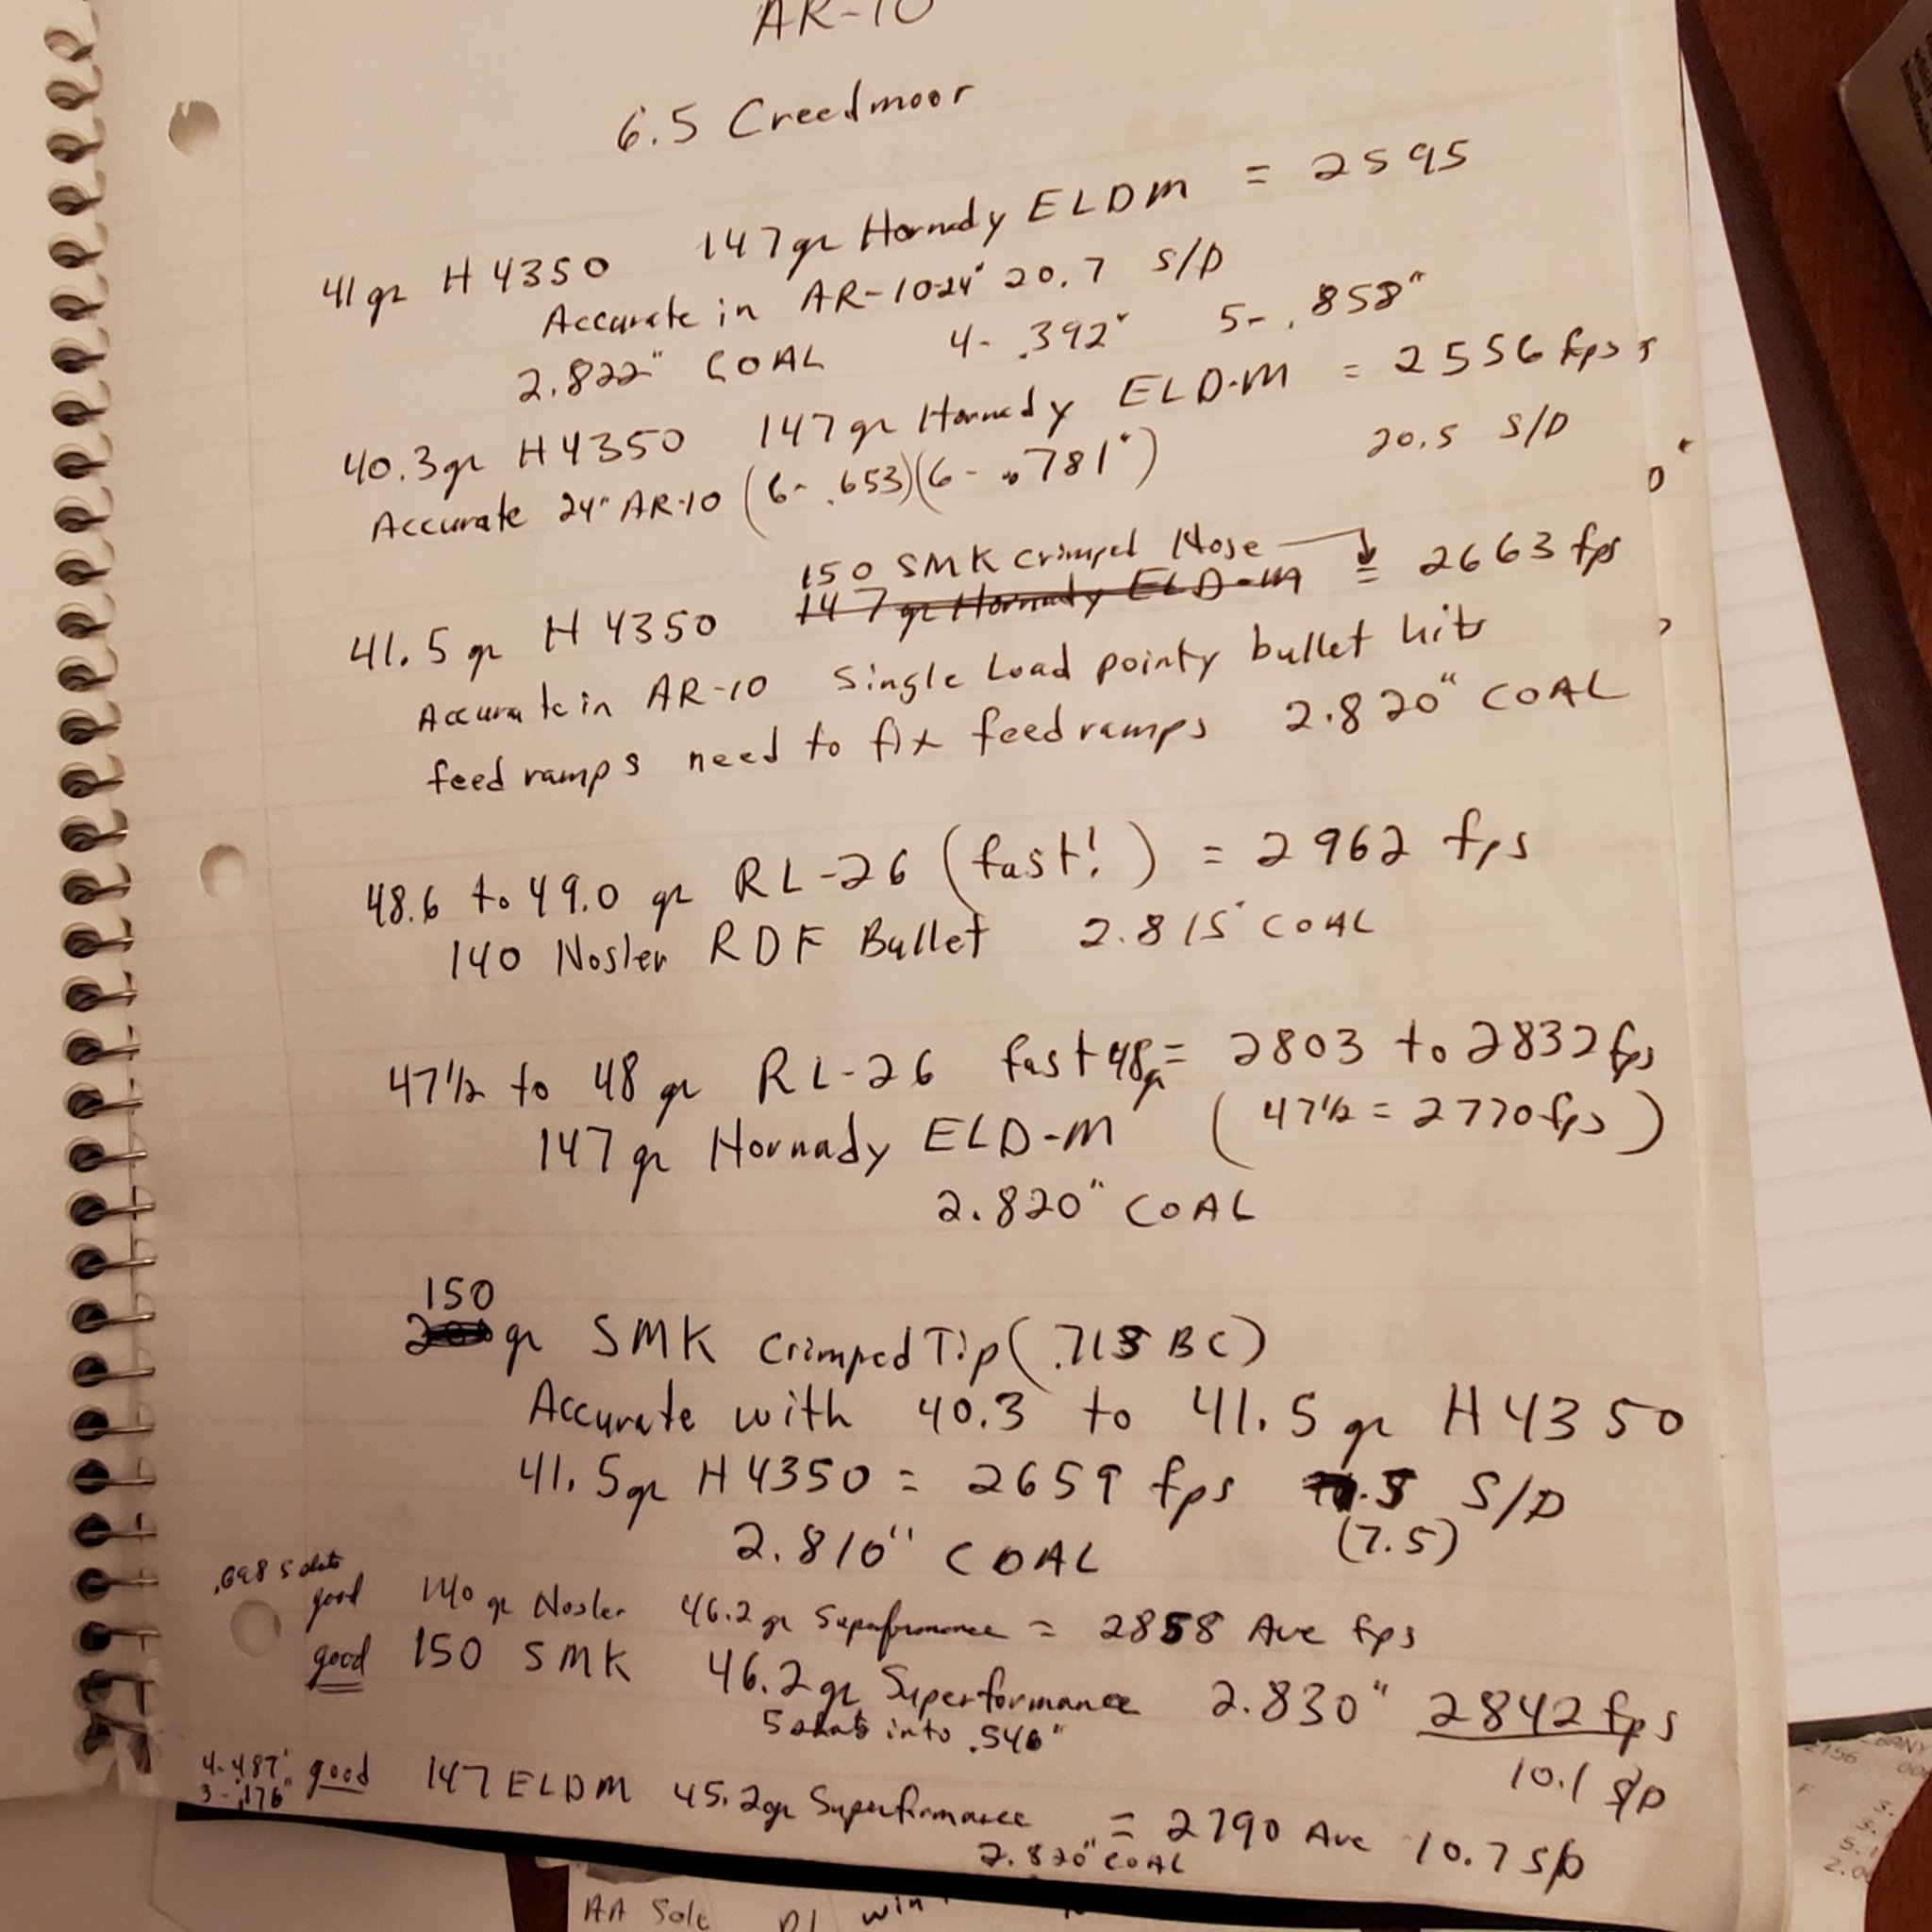 AR-10
6.5 Creedmoor
41 gr H4350 147 gr Hornady ELDM = 2595
Accurate in AR-10 24" 20.7 S/D
2.822" COAL 4- .392" 5- .858"
40.3 gr H4350 147 gr Hornady ELD-M = 2556 fps
Accurate 24" AR-10 (6- .653)(6- .781") 20.5 S/D
150 SMK crimped Nose
41.5 gr H4350 147 gr Hornady ELD-M = 2663 fps
Accurate in AR-10 Single Load pointy bullet hits
feed ramps need to fix feed ramps 2.820" COAL
48.6 to 49.0 gr RL-26 (fast!) = 2962 fps
140 Nosler RDF Bullet 2.815" COAL
47 1/2 to 48 gr RL-26 fast 48gr = 2803 to 2832 fps
147 gr Hornady ELD-M (47 1/2 = 2770 fps)
2.820" COAL
150
gr SMK Crimped Tip (.713 BC)
Accurate with 40.3 to 41.5 gr H4350
41.5 gr H4350 = 2659 fps S/D
2.810" COAL (7.5)
.698 5 shots
good 140 gr Nosler 46.2 gr Superformance = 2858 Ave fps
good 150 SMK 46.2 gr Superformance 2.830" 2842 fps
5 shots into .546" 10.1 S/D
4-.487" good 147 ELDM 45.2gr Superformance = 2790 Ave 10.7 S/D
3-.176" 2.820" COAL
AA Sale
win